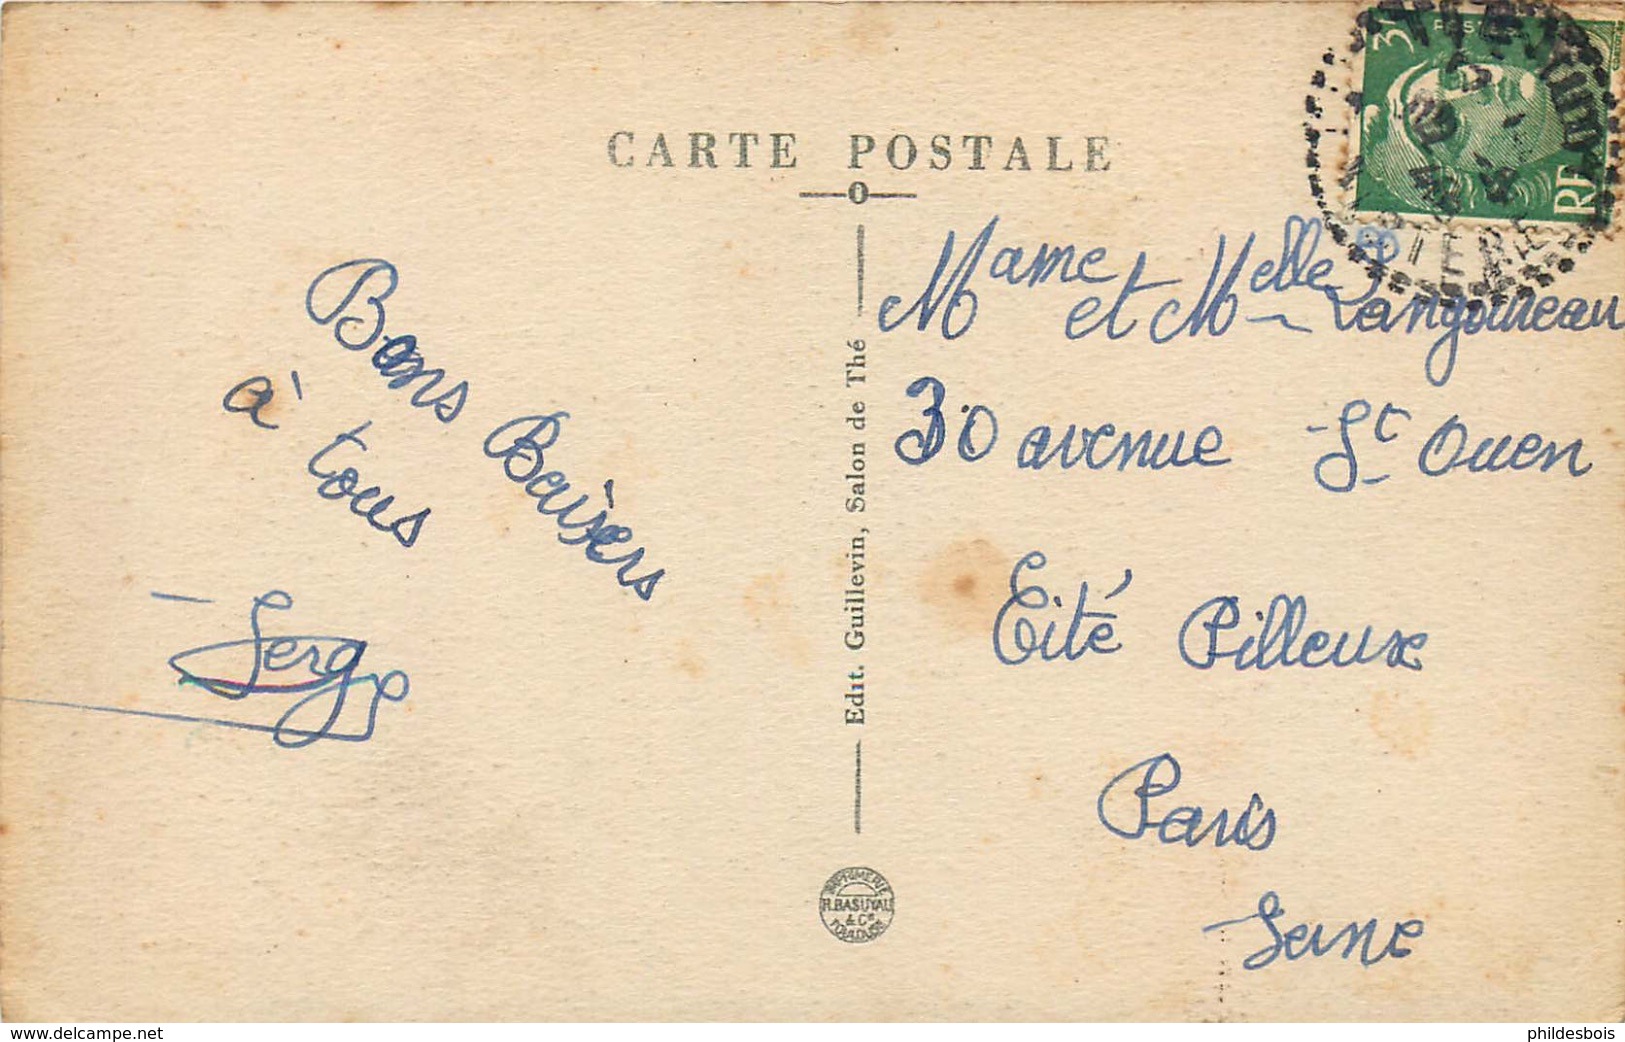 CARTE POSTALE
Bons Baisers
à tous
Serge
Edit. Guillevin, Salon de Thé
IMPRIMERIE
R. BASUYAU
& Cie
TOULOUSE
3F
POSTES
RF
Mame et Melle Langoureau
30 avenue St Ouen
Cité Pilleux
Paris
Seine
www.delcampe.net
phildesbois